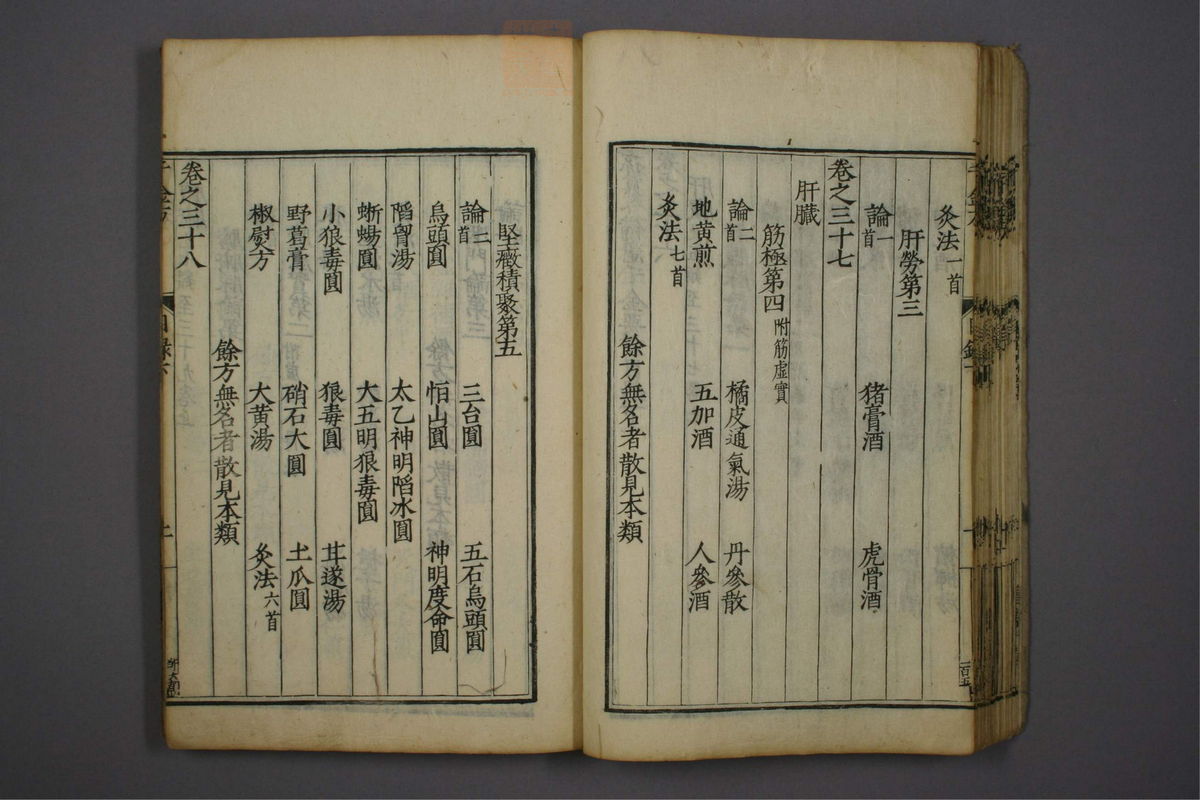 灸法一首
肝勞第三
論一首 猪膏酒 虎骨酒
卷之三十七
肝臟
筋極第四 附筋虛實
論二首 橘皮通氣湯 丹參散
地黃煎 五加酒 人參酒
灸法七首
餘方無名者散見本類
堅癥積聚第五
論二首 三台圓 五石烏頭圓
烏頭圓 恒山圓 神明度命圓
陷胷湯 太乙神明陷冰圓
蜥蜴圓 大五明狼毒圓
小狼毒圓 狼毒圓 甘遂湯
野葛膏 硝石大圓 土瓜圓
椒熨方 大黃湯 灸法六首
餘方無名者散見本類
卷之三十八
千金方
目錄